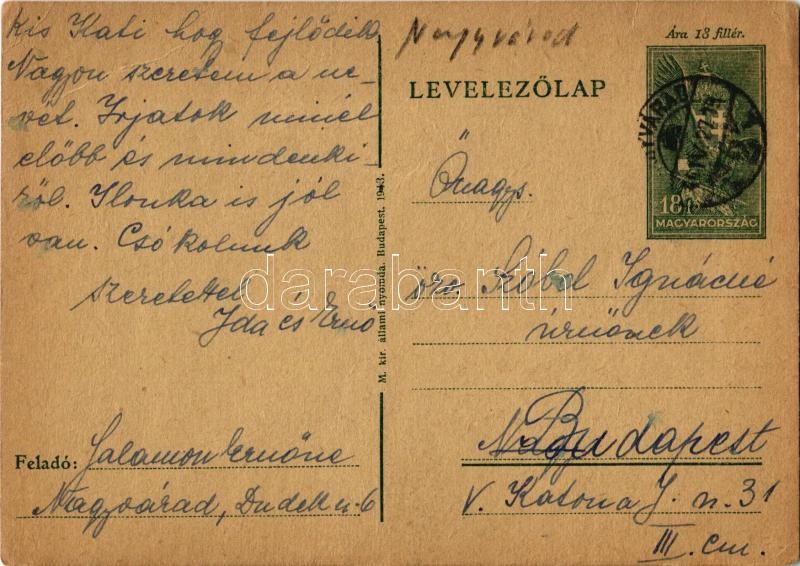 Kis Kati hog fejlődik
Nagyon szeretem a ne-
vét. Irjatok minél
előbb és mindenki-
ről. Ilonka is jól
van. Csókolunk
szeretettel
Ida és Ernő
Feladó: Salamon Ernőné
Nagyvárad, Dudek u. 6
M. kir. állami nyomda. Budapest. 1943.
Nagyvárad
Ára 18 fillér.
LEVELEZŐLAP
18
MAGYARORSZÁG
Önagys.
özv. Ignácné
úrnőnek
Budapest
V. Katona J. u. 31
III. em.
darabanth